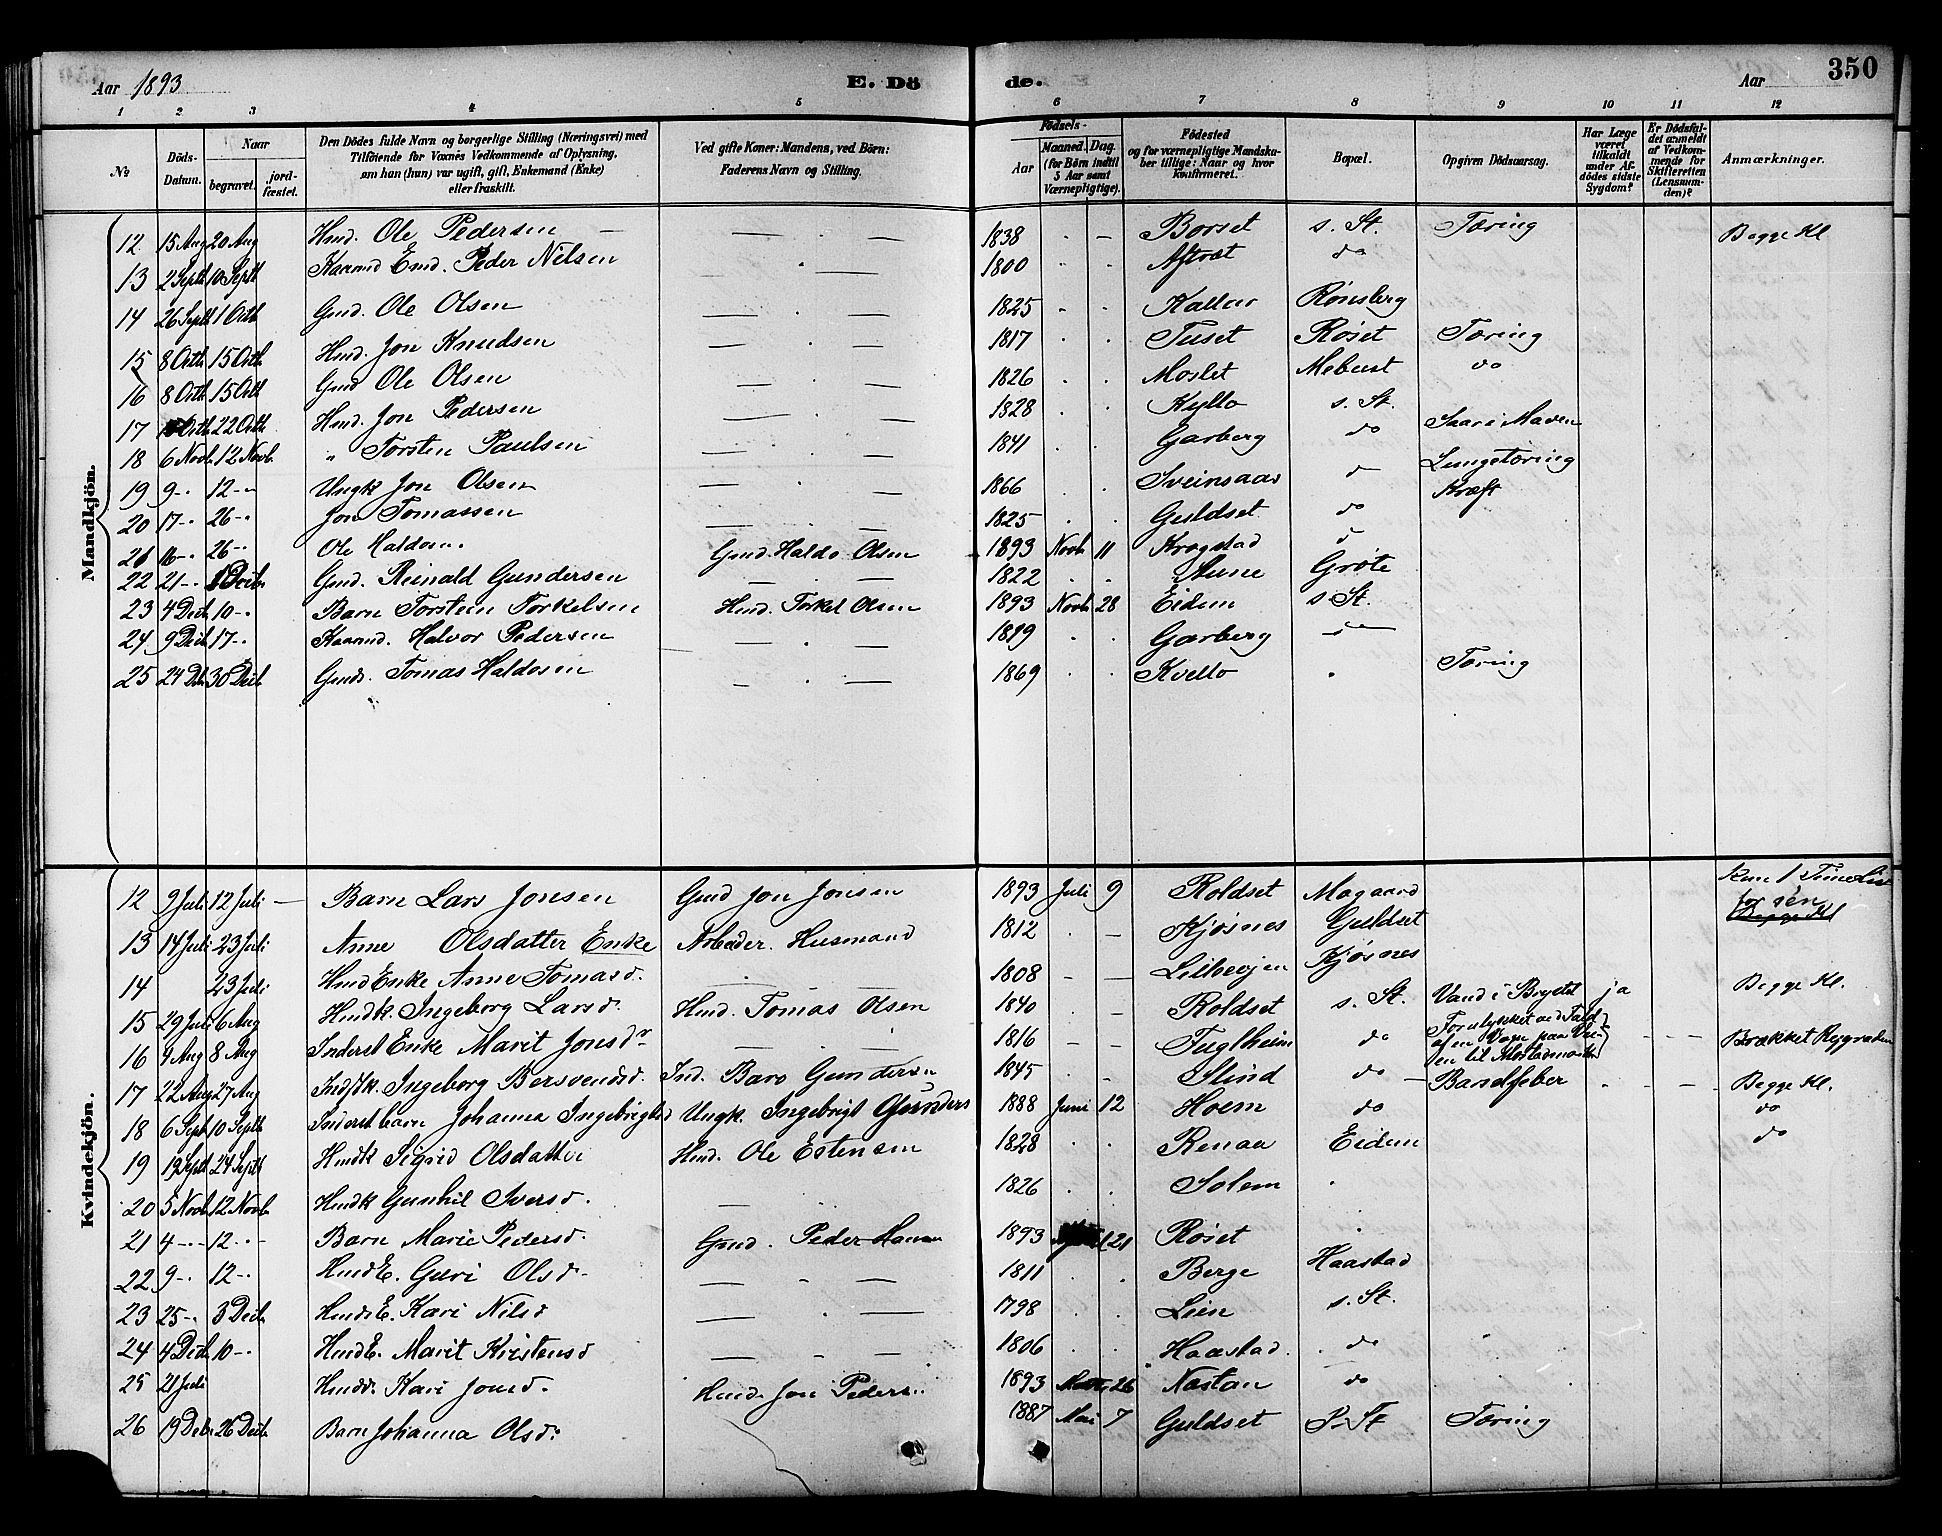 Aar 1893 E. Dö de. Aar 350
1 2 3 4 5 6 7 8 9 10 11 12
№ Döds-Datum. Naar begravet. jord-fæstet. Den Dödes fulde Navn og borgerlige Stilling (Næringsvei) med Tilföiende for Voxnes Vedkommende af Oplysning, om han (hun) var ugift, gift, Enkemand (Enke) eller fraskilt. Ved gifte Koner: Mandens, ved Börn: Faderens Navn og Stilling. Födsels- Aar Maaned. Dag. (for Börn indtil 5 Aar samt Værnepligtige). Födested og for værnepligtige Mandska-ber tillige: Naar og hvor konfirmeret. Bopæl. Opgiven Dödsaarsag. Har Læge været tilkaldt under Af-dödes sidste Sygdom? Er Dödsfal-det anmeldt af Vedkom-mende for Skifteretten (Lensman-den)? Anmærkninger.
Mandkjön.
12 15 Aug 20 Aug Hmd. Ole Pedersen — 1838 Borset s. St. Tæring Begge Kl
13 2 Septb 10 Septb Kaarmd Emd. Peder Nilsen 1800 Aftret do
14 26 Septb 1 Octb Gmd. Ole Olsen 1825 Kallar Rønsberg
15 8 Octb 15 Octb Hmd. Jon Knudsen 1817 Tuset Røset Tæring
16 8 Octb 15 Octb Gmd Ole Olsen 1826 Moslet Mebust do
17 Octb 22 Octb Hmd. Jon Pedersen 1828 Kyllo s. St. Saar i Maven
18 6 Novb. 12 Novb. " Torsten Paulsen 1841 Garberg do Lungetæring
19 9 -" 12 -" Ungk Jon Olsen 1866 Sveinsaas do Kræft
20 17 -" 26 -" Jon Tomassen 1825 Guldset do
21 16 -" 26 -" Ole Haldosen. Gmd. Haldo Olsen 1893 Novb 11 Krogstad
22 21 -" Decb. Gmd. Reinald Gundersen 1822 Aune Grøte
23 4 Decb 10 -" Barn Torstein Torkelsen Hmd. Torkel Olsen 1893 Novb 28 Eidem s. St.
24 9 Decb. 17 -" Kaarmd. Halvor Pedersen 1819 Garberg
25 24 Db. 30 Decb Gmds. Tomas Haldosen 1869 Kvello Tæring
Kvindekjön.
12 9 Juli 12 Juli — Barn Lars Jonsen Gmd Jon Jonsen 1893 Juli 9 Roldset Mogaard Kun 1 Time
13 14 Juli 23 Juli Anne Olsdatter Enke Arbeder. Husmand 1812 Kjøsnes Guldset Begge Kl
14 23 Juli Hmd Enke Anne Tomasd. 1808 Lillevjen Kjøsnes
15 29 Juli 6 Aug Hmdk. Ingeborg Larsd. Hmd. Tomas Olsen 1840 Roldset s. St. Vand i Brystet ja Begge Kl.
16 4 Aug 8 Aug Inderst Enke Marit Jonsdr 1816 Fuglheim do Forulykket ved Fald af en Vogn paa Vei-en til Mostadmarken Brækket Rygraden
17 22 Aug 27 Aug Indstk. Ingeborg Bersvendsd. Ind. Baro Gundersen 1845 Slind do Barselfeber Begge Kl.
18 6 Septb 10 Septb Inderst barn Johanna Ingebrigtsd Ungk. Ingebrigt Gunders 1888 Juni 12 Hoem do do
19 19 Septb 24 Septb Hmdk Sigrid Olsdatter Hmd. Ole Estensen 1828 Renaa Eidem do
20 5 Novb 12 Novb. Hmdk Gunhil Iversd. 1826 Solem
21 4 -" 12 -" Barn Marie Pedersd. Gmd. Peder Hansen 1893 21 Røset
22 9 -" 12 -" Hmd E. Guri Olsd. 1811 Berge Haastad
23 25 -" 3 Decb. Hmds E. Kari Nilsd 1798 Lien s. St.
24 4 Decb 10 -" Hmd E. Marit Kristensd 1806 Haastad do
25 21 Juli Hmdd. Kari Jonsd. Hmd. Jon Pedersen 1893 26 Næstan do
26 19 Decb. 26 Decb. Barn Johanna Olsd. 1887 Mai 7 Guldset S. St Tæring